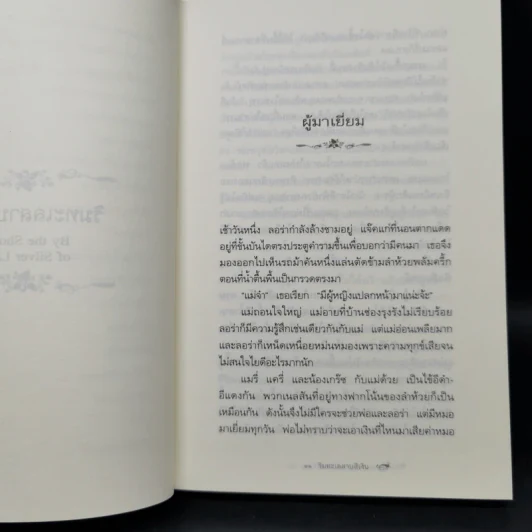 ผู้มาเยี่ยม
เช้าวันหนึ่ง ลอร่ากำลังล้างชามอยู่ แจ๊คแก่ที่นอนตากแดด
อยู่ที่ขั้นบันไดตรงประตูคำรามขึ้นเพื่อบอกว่ามีคนมา เธอจึง
มองออกไปเห็นรถม้าคันหนึ่งแล่นตัดข้ามลำห้วยพลัมครี้ก
ตอนที่น้ำตื้นพื้นเป็นกรวดตรงมา
"แม่จ๋า" เธอเรียก "มีผู้หญิงแปลกหน้ามาแน่ะจ้ะ"
แม่ถอนใจใหญ่ แม่อายที่บ้านช่องรุงรังไม่เรียบร้อย
ลอร่าก็มีความรู้สึกเช่นเดียวกันกับแม่ แต่แม่อ่อนเพลียมาก
และลอร่าก็เหน็ดเหนื่อยหม่นหมองเพราะความทุกข์เสียจน
ไม่สนใจไยดีอะไรมากนัก
แมรี่ แครี่ และน้องเกร๊ซ กับแม่ด้วย เป็นไข้อีดำ-
อีแดงกัน พวกเนลสันที่อยู่ทางฟากโน้นของลำห้วยก็เป็น
เหมือนกัน ดังนั้นจึงไม่มีใครจะช่วยพ่อและลอร่า แต่มีหมอ
มาเยี่ยมทุกวัน พ่อไม่ทราบว่าจะเอาเงินที่ไหนมาเสียค่าหมอ
ริมทะเลสาบ
By the Sho
of Silver L